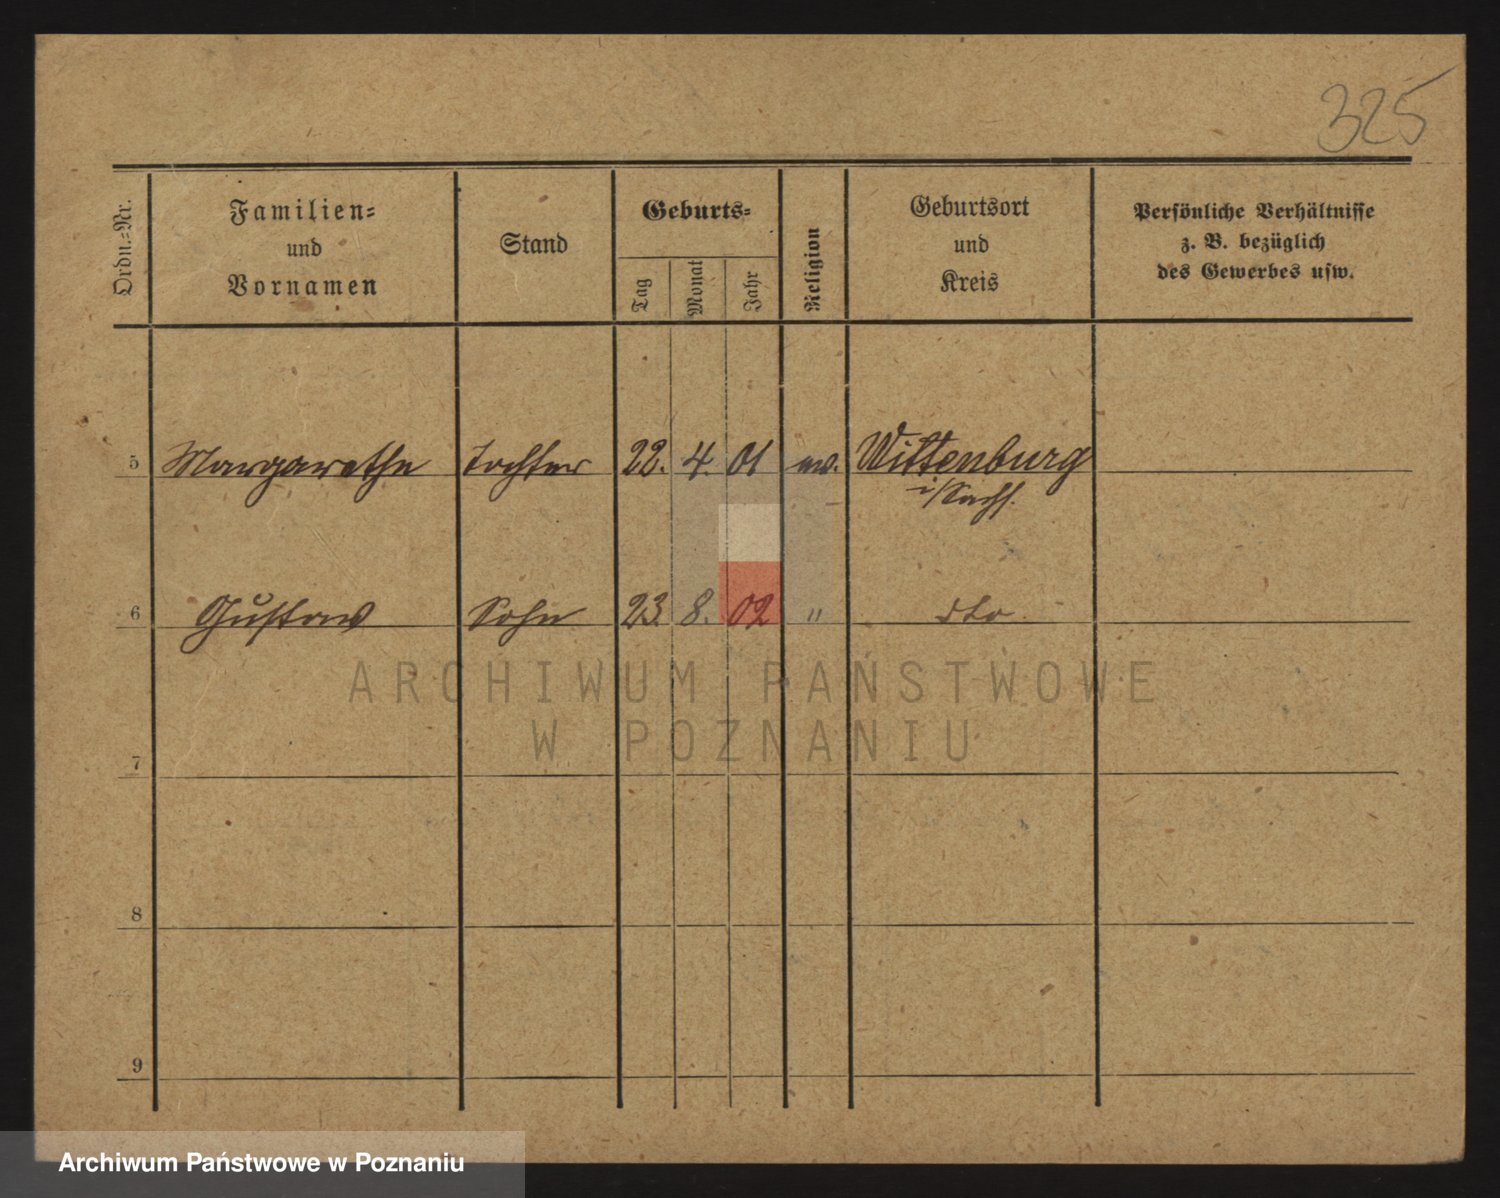 325
Ordn.-Nr.
Familien-
und
Vornamen
Stand
Geburts-
Tag
Monat
Jahr
Religion
Geburtsort
und
Kreis
Persönliche Verhältnisse
z. B. bezüglich
des Gewerbes usw.
5 Margarethe Tochter 22. 4. 01 ev. Wittenburg
i/Sachs.
6 Gustav Sohn 23. 8. 02 " dto
ARCHIWUM PAŃSTWOWE
W POZNANIU
7
8
9
Archiwum Państwowe w Poznaniu